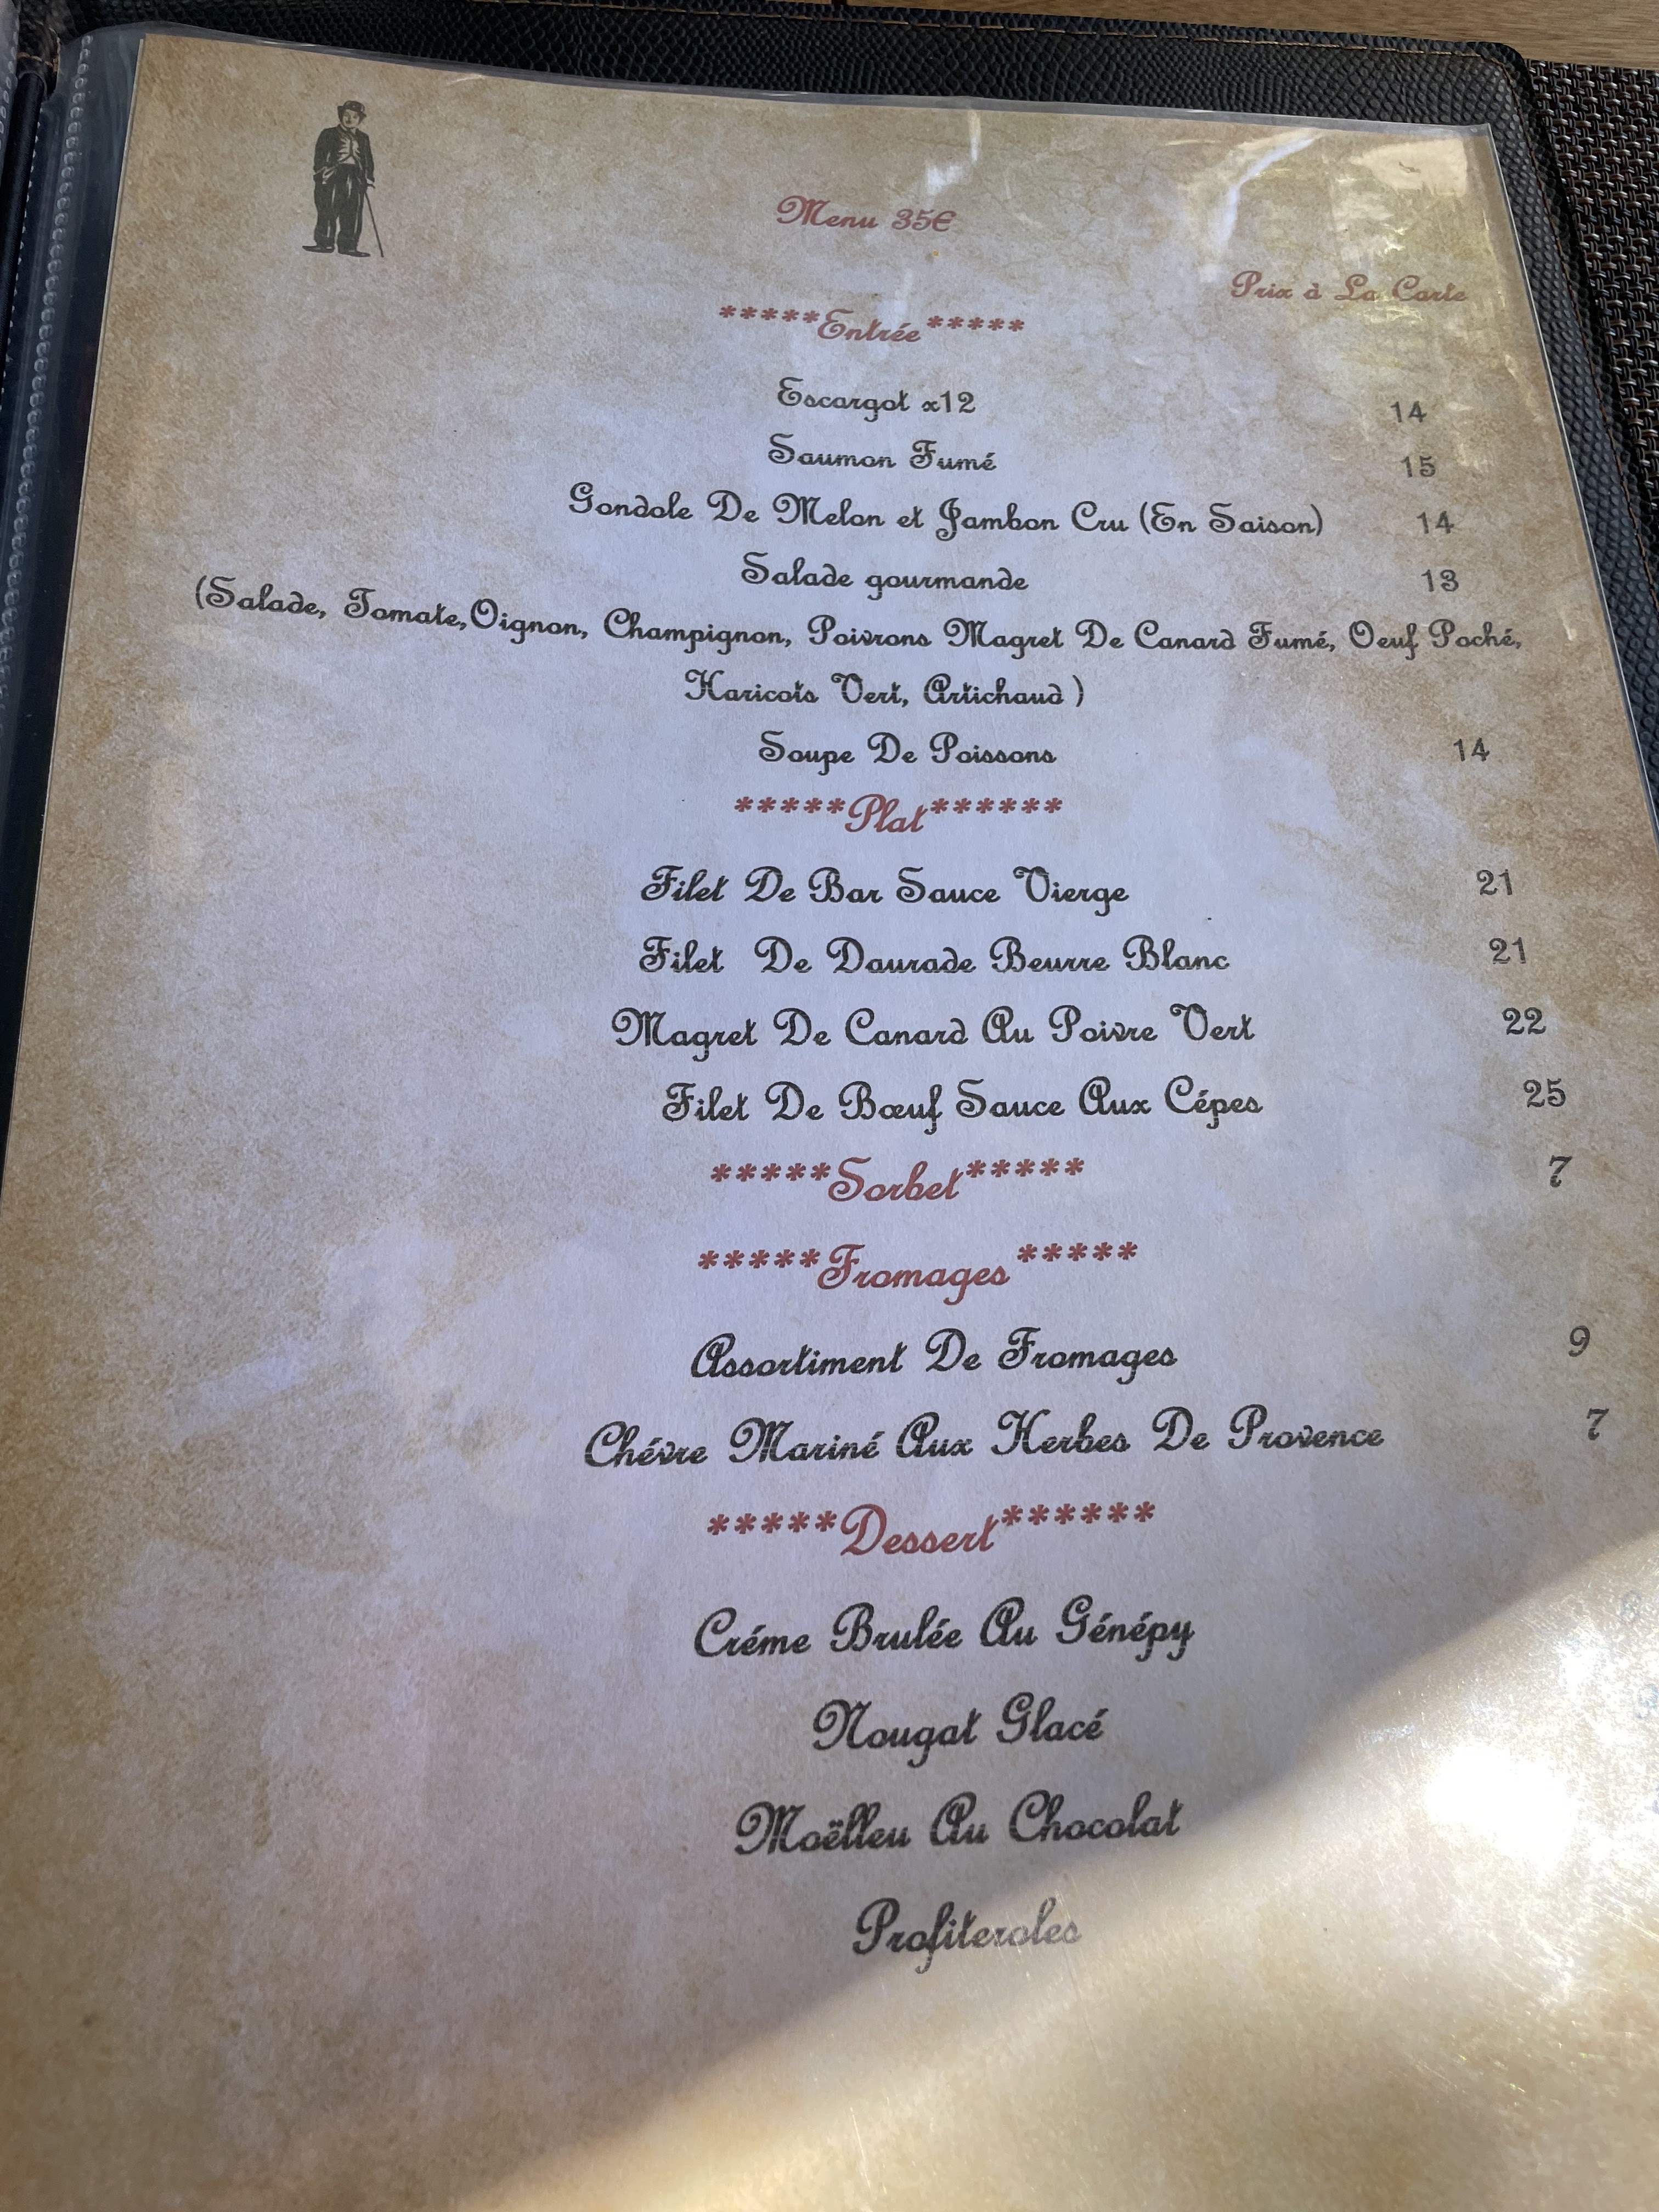 Menu 35€
Prix à La Carte
*****Entrée*****
Escargot x12 14
Saumon Fumé 15
Gondole De Melon et Jambon Cru (En Saison) 14
Salade gourmande 13
(Salade, Tomate,Oignon, Champignon, Poivrons Magret De Canard Fumé, Oeuf Poché,
Haricots Vert, Artichaud )
Soupe De Poissons 14
*****Plat******
Filet De Bar Sauce Vierge 21
Filet De Daurade Beurre Blanc 21
Magret De Canard Au Poivre Vert 22
Filet De Bœuf Sauce Aux Cépes 25
*****Sorbet***** 7
*****Fromages*****
Assortiment De Fromages 9
Chévre Mariné Aux Herbes De Provence 7
*****Dessert******
Créme Brulée Au Génépy
Nougat Glacé
Moëlleu Au Chocolat
Profiteroles